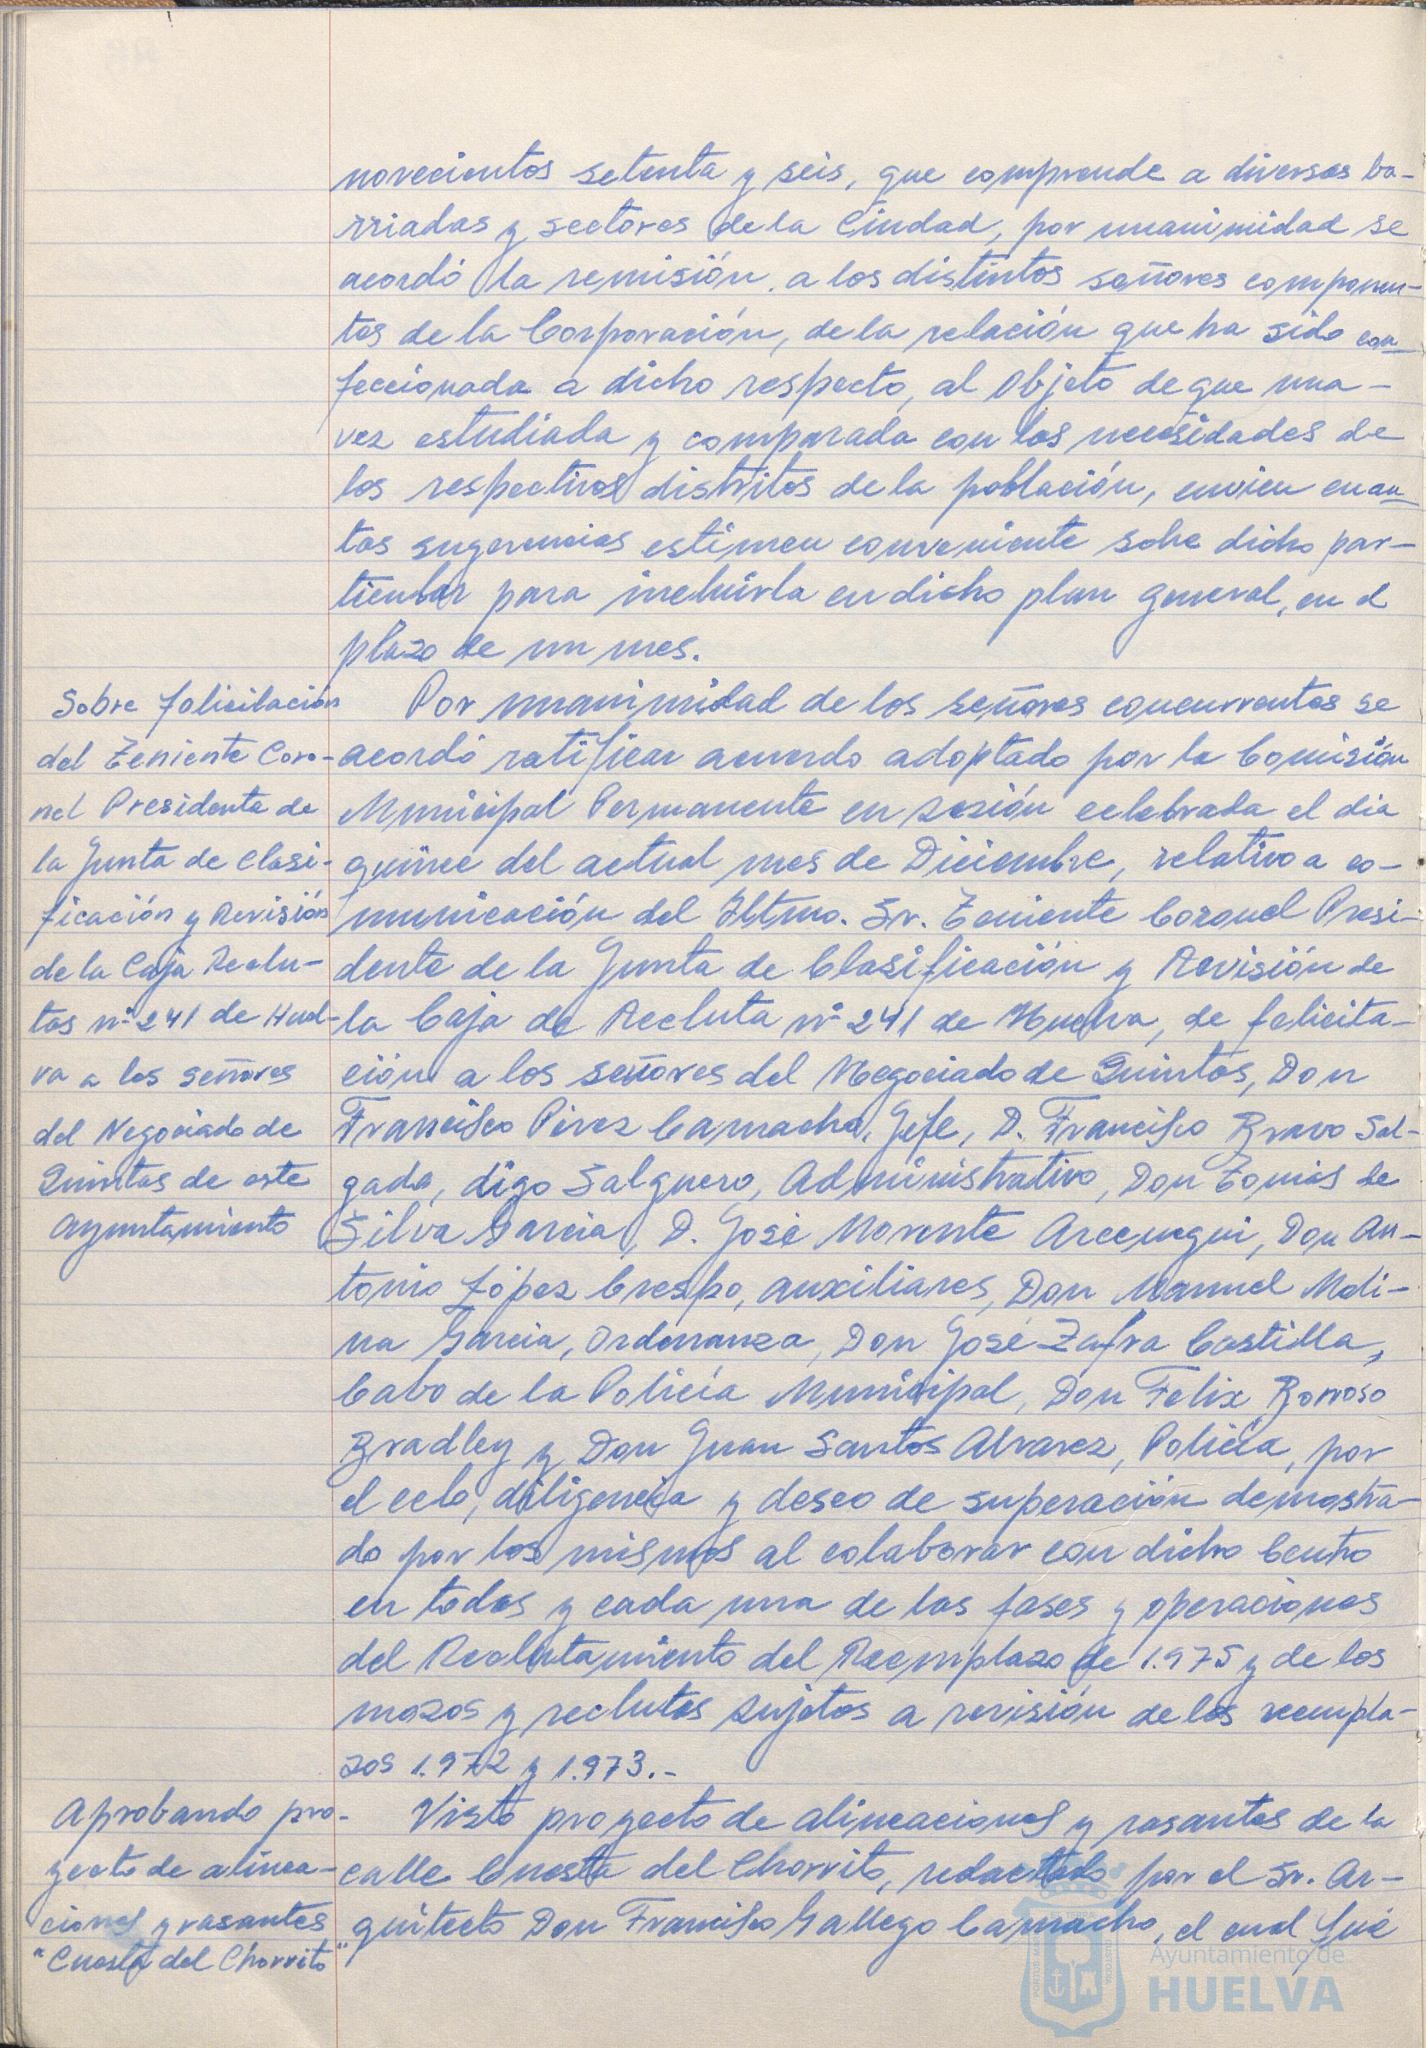 novecientos setenta y seis, que comprende a diversas ba-
rriadas y sectores de la Ciudad, por unanimidad se
acordó la remisión a los distintos señores componen-
tes de la Corporación, de la relación que ha sido con
feccionada a dicho respecto, al Objeto de que una-
vez estudiada y comparada con las necesidades de
los respectivos distritos de la población, envien cuan
tas sugerencias estimen conveniente sobre dicho par-
ticular para incluirla en dicho plan general, en el
plazo de un mes.
Sobre felicitación
del Teniente Coro-
nel Presidente de
la Junta de Clasi-
ficación y Revisión
de la Caja Reclu-
tas nº 241 de Huel-
va a los señores
del Negociado de
Quintas de este
Ayuntamiento
Por unanimidad de los señores concurrentes se
acordó ratificar acuerdo adoptado por la Comisión
Municipal Permanente en sesión celebrada el dia
quince del actual mes de Diciembre, relativo a co-
municación del Iltmo. Sr. Teniente Coronel Presi-
dente de la Junta de Clasificación y Revisión de
la Caja de Recluta nº 241 de Huelva, de felicita-
ción a los señores del Negociado de Quintas, Don
Francisco Pérez Camacho, Jefe, D. Francisco Bravo Sal-
gado, digo Salguero, Administrativo, Don Tomás de
Silva Garcia, D. José Morente Arcenegui, Don An-
tonio López Crespo, auxiliares, Don Manuel Moli-
na Garcia, Ordenanza, Don José Zafra Castilla,
Cabo de la Policía Municipal, Don Felix Borroso
Bradley y Don Juan Santos Alvarez, Policía, por
el celo, diligencia y deseo de superación demostra-
do por los mismos al colaborar con dicho Centro
en todas y cada una de las fases y operaciones
del Reclutamiento del Reemplazo de 1.975 y de los
mozos y reclutas sujetos a revisión de los reempla-
zos 1.972 y 1.973.-
Aprobando pro-
yecto de alinea-
ciones y rasantes
"Cuesta del Chorrito"
Visto proyecto de alineaciones y rasantes de la
calle Cuesta del Chorrito, redactado por el Sr. Ar-
quitecto Don Francisco Gallego Camacho, el cual fué
Ayuntamiento de
HUELVA